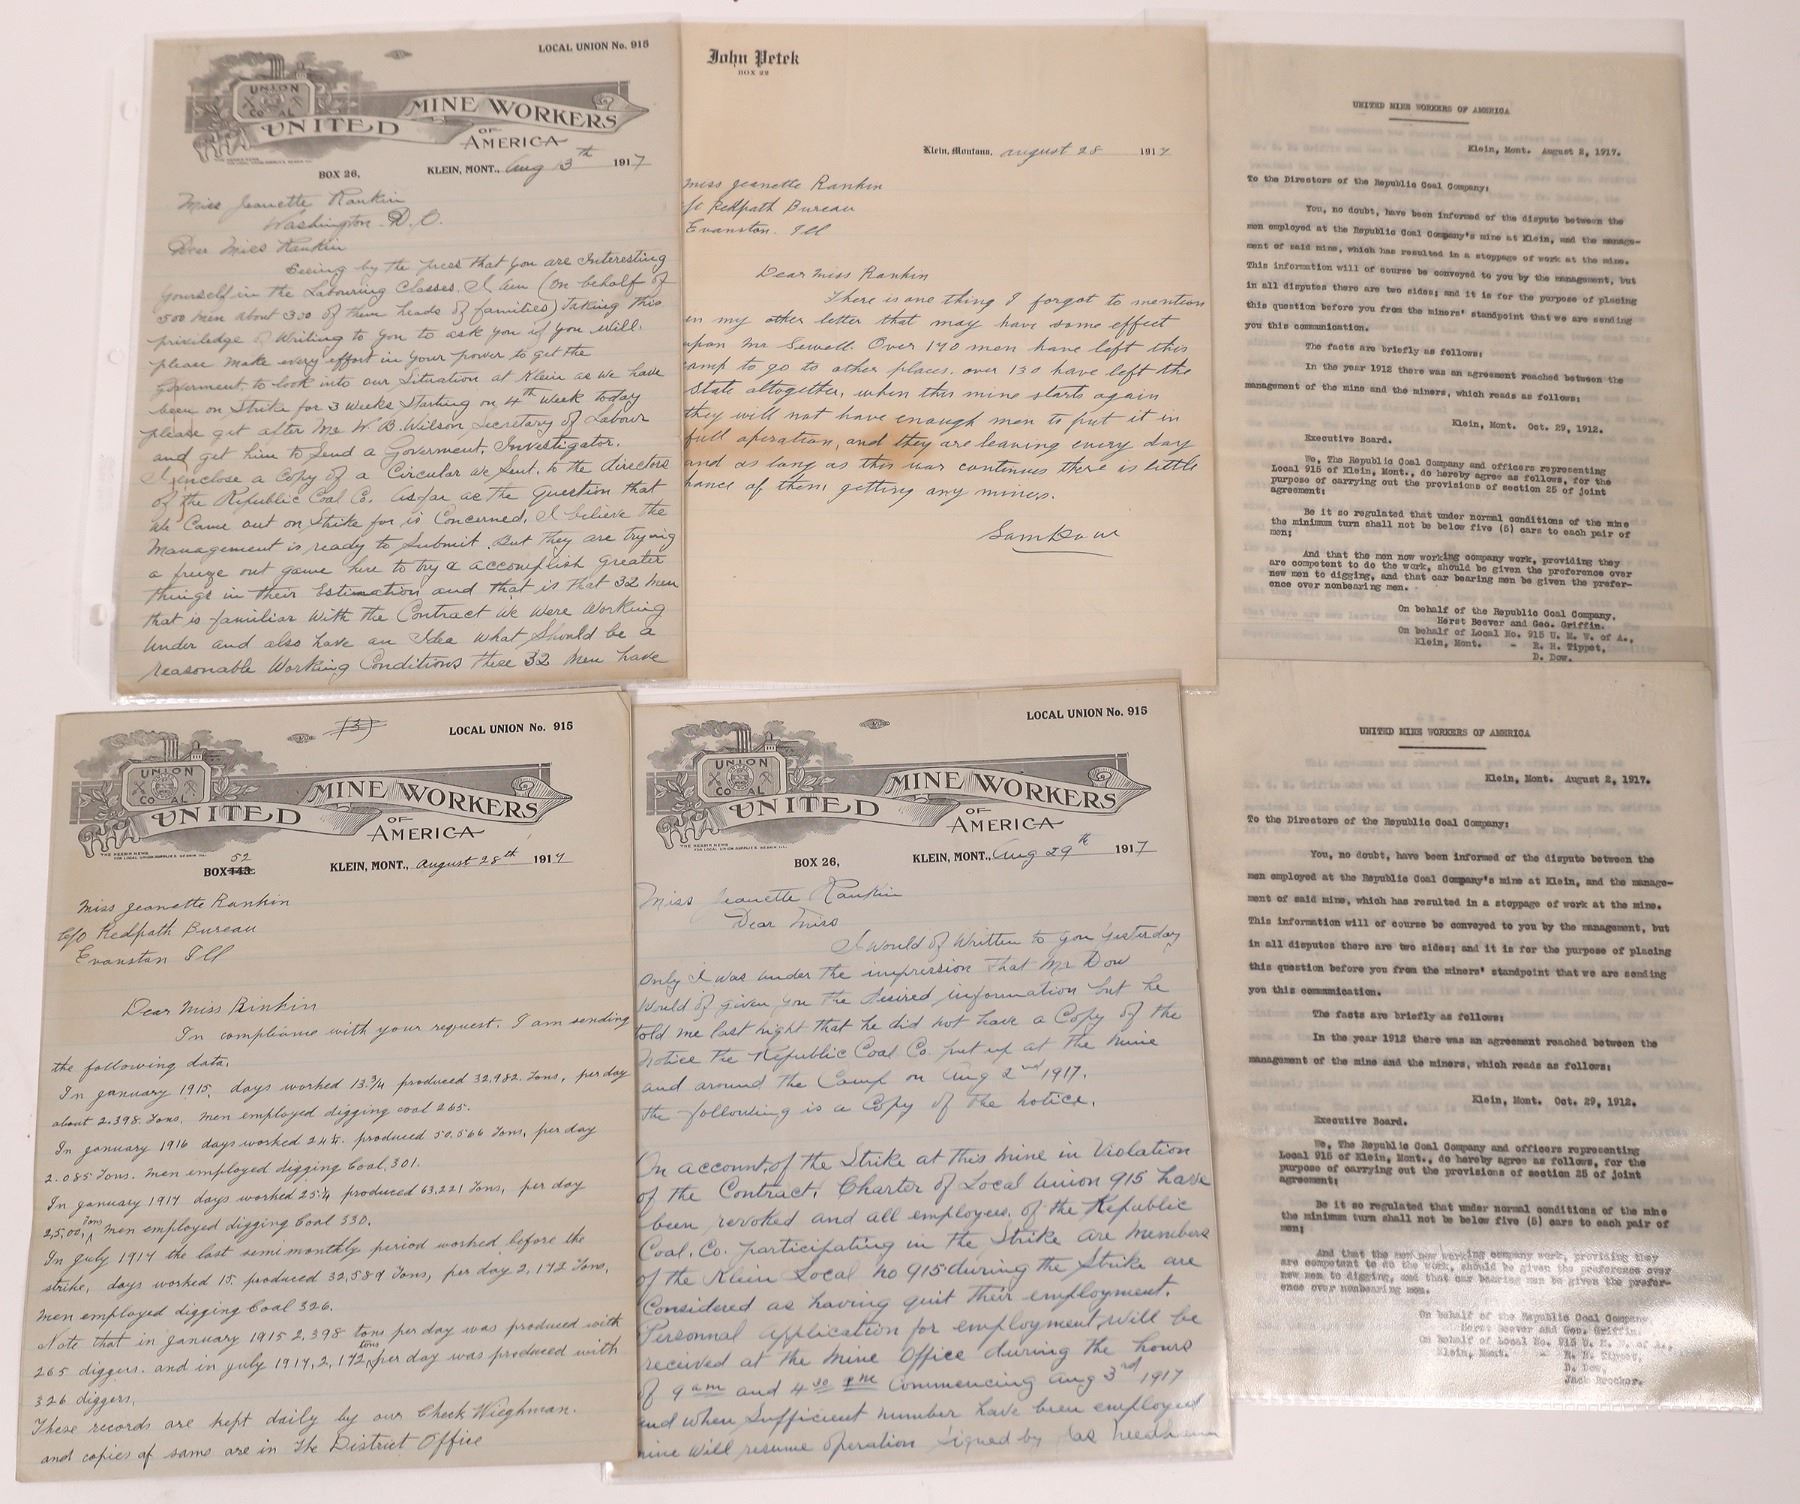 LOCAL UNION No. 915
UNION
COAL
UNITED MINE WORKERS
OF
AMERICA
BOX 26, KLEIN, MONT., Aug 13th 1917
Miss Jeanette Rankin
Washington D.C.
Dear Miss Rankin
Seeing by the press that you are Interesting
yourself in the Labouring Classes. I am (on behalf of
500 men about 300 of them heads of families) Taking this
priviledge of Writing to you to ask you if you will.
please make every effort in your power to get the
Goverment to look into our Situation at Klein as we have
been on Strike for 3 weeks Starting on 4th week today
please get after Mr W. B. Wilson Secretary of Labour
and get him to Send a Goverment, Investigator.
I enclose a Copy of a Circular we Sent to the directors
of the Republic Coal Co. As far as the question that
we Came out on Strike for is Concerned, I believe the
Management is ready to Submit. But they are trying
a freeze out game here to try & accomplish greater
things in their Estimation and that is that 32 men
that is familiar with the Contract we were working
under and also have an Idea what Should be a
reasonable Working Conditions these 32 men have
John Petek
BOX 22
Klein, Montana, august 28 1917
miss Jeanette Rankin
c/o Redpath Bureau
Evanston. Ill
Dear miss Rankin
There is one thing I forgot to mention
in my other letter that may have some effect
upon Mr Sewell. Over 140 men have left this
camp to go to other places. over 130 have left the
State altogether, when this mine starts again
they will not have enough men to put it in
full operation, and they are leaving every day
and as long as this war continues there is little
chance of them getting any miners.
Sam Dow
UNITED MINE WORKERS OF AMERICA
Klein, Mont. August 2, 1917.
To the Directors of the Republic Coal Company:
You, no doubt, have been informed of the dispute between the
men employed at the Republic Coal Company's mine at Klein, and the manage-
ment of said mine, which has resulted in a stoppage of work at the mine.
This information will of course be conveyed to you by the management, but
in all disputes there are two sides; and it is for the purpose of placing
this question before you from the miners' standpoint that we are sending
you this communication.
The facts are briefly as follows:
In the year 1912 there was an agreement reached between the
management of the mine and the miners, which reads as follows:
Klein, Mont. Oct. 29, 1912.
Executive Board.
We, The Republic Coal Company and officers representing
Local 915 of Klein, Mont., do hereby agree as follows, for the
purpose of carrying out the provisions of section 25 of joint
agreement:
Be it so regulated that under normal conditions of the mine
the minimum turn shall not be below five (5) cars to each pair of
men;
And that the men now working company work, providing they
are competent to do the work, should be given the preference over
new men to digging, and that car bearing men be given the prefer-
ence over nonbearing men.
On behalf of the Republic Coal Company,
Herst Beever and Geo. Griffin.
On behalf of Local No. 915 U. M. W. of A.,
Klein, Mont. - R. H. Tippet,
D. Dow.
(3)
LOCAL UNION No. 915
UNION
COAL
UNITED MINE WORKERS
OF
AMERICA
52
BOX 143 KLEIN, MONT., august 28th 1917
Miss Jeanette Rankin
C/o Redpath Bureau
Evanston Ill
Dear Miss Rinkin
In compliance with your request. I am sending
the following data.
In january 1915, days worked 13.3/4 produced 32,982. Tons, per day
about 2.398. Tons, men employed digging coal 265.
In january 1916 days worked 24¼. produced 50.566 Tons, per day
2.085 Tons. men employed digging Coal, 301.
In january 1917 days worked 25¼ produced 63,221 Tons, per day
2,500, tons men employed digging Coal 330.
In july 1917 the last semi monthly period worked before the
strike, days worked 15. produced 32,589 Tons, per day 2,172 Tons,
men employed digging Coal 326.
Note that in january 1915 2,398 tons per day was produced with
265 diggers. and in july 1917, 2,172 tons per day was produced with
326 diggers.
These records are kept daily by our Check Wieghman.
and copies of same are in the District Office
LOCAL UNION No. 915
UNION
COAL
UNITED MINE WORKERS
OF
AMERICA
BOX 26, KLEIN, MONT., Aug 29th 1917
Miss Jeanette Rankin
Dear Miss
I would of Written to you yesterday
only I was under the impression that Mr Dow
would of given you the desired information but he
told me last night that he did not have a Copy of the
Notice the Republic Coal Co. put up at the Mine
and around the Camp on Aug 2nd 1917.
the following is a Copy of the notice.
On account, of the Strike at this mine in Violation
of the Contract, Charter of Local Union 915 have
been revoked and all employees. of the Republic
Coal. Co. participating in the Strike are members
of the Klein Local no 915 during the Strike are
Considered as having quit their employment.
Personnal application for employment, will be
received at the Mine Office during the hours
of 9 am and 4 30 PM Commencing Aug 3rd 1917
and when Sufficient number have been employed
mine will resume operation Signed by Jas Needham
UNITED MINE WORKERS OF AMERICA
Klein, Mont. August 2, 1917.
To the Directors of the Republic Coal Company:
You, no doubt, have been informed of the dispute between the
men employed at the Republic Coal Company's mine at Klein, and the manage-
ment of said mine, which has resulted in a stoppage of work at the mine.
This information will of course be conveyed to you by the management, but
in all disputes there are two sides; and it is for the purpose of placing
this question before you from the miners' standpoint that we are sending
you this communication.
The facts are briefly as follows:
In the year 1912 there was an agreement reached between the
management of the mine and the miners, which reads as follows:
Klein, Mont. Oct. 29, 1912.
Executive Board.
We, The Republic Coal Company and officers representing
Local 915 of Klein, Mont., do hereby agree as follows, for the
purpose of carrying out the provisions of section 25 of joint
agreement:
Be it so regulated that under normal conditions of the mine
the minimum turn shall not be below five (5) cars to each pair of
men;
And that the men now working company work, providing they
are competent to do the work, should be given the preference over
new men to digging, and that car bearing men be given the prefer-
ence over nonbearing men.
On behalf of the Republic Coal Company
Herst Beever and Geo. Griffin.
On Behalf of Local No. 915 U. M. W. of A.,
Klein, Mont. - R. H. Tippet,
D. Dow,
Jack Brocker.